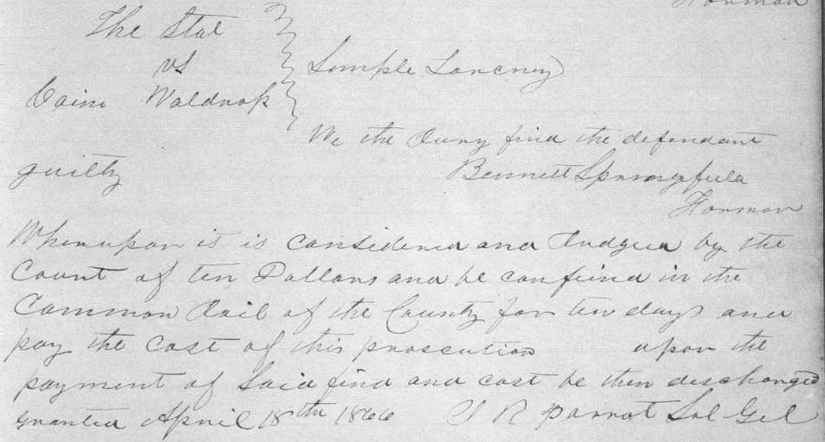 Forman
The Stat
vs
Simple Larceny
Caine Waldrop
We the Jury find the defendant
guilty
Bennett Springfield
Forman
Whereupon it is considered and Judged by the
Court of ten Dollars and be confined in the
Common Jail of the County for ten days and
pay the cost of this prosecution upon the
payment of said find and cost be then descharged
granted April 18th 1866 J R Parrot Sol Gel